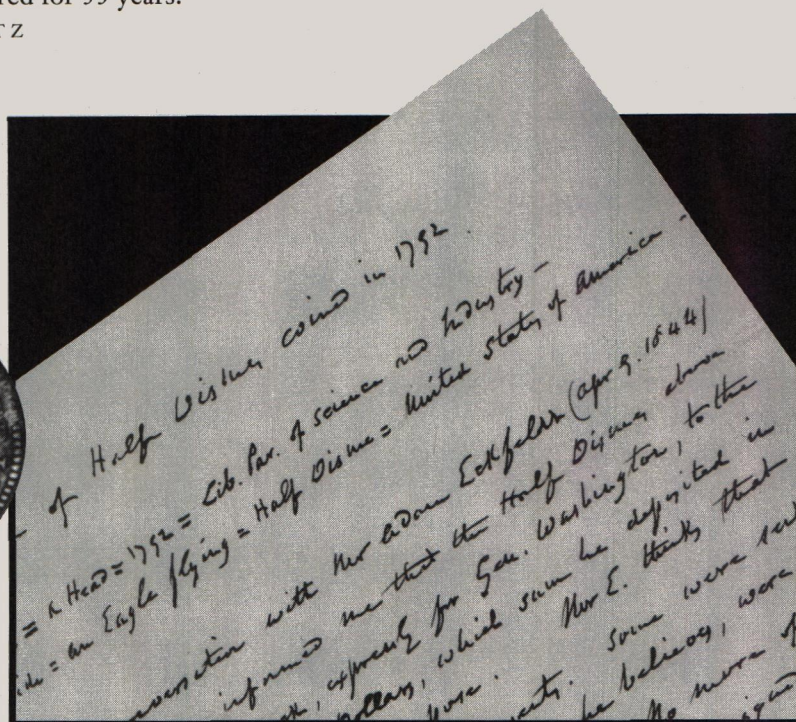 red for 99 years.
T Z
of Half Disme coined in 1792.
= a Head = 1792 = Lib. Par. of Science and Industry -
= an Eagle flying = Half Disme = United States of America -
with Mr Adam Eckfeldt (apr 9. 1844)
informed me that the Half Dismes above
expressly for Gen. Washington, to the
Dollars, which sum he deposited in
Mr E. thinks that
Some were
he believes, were
No more of